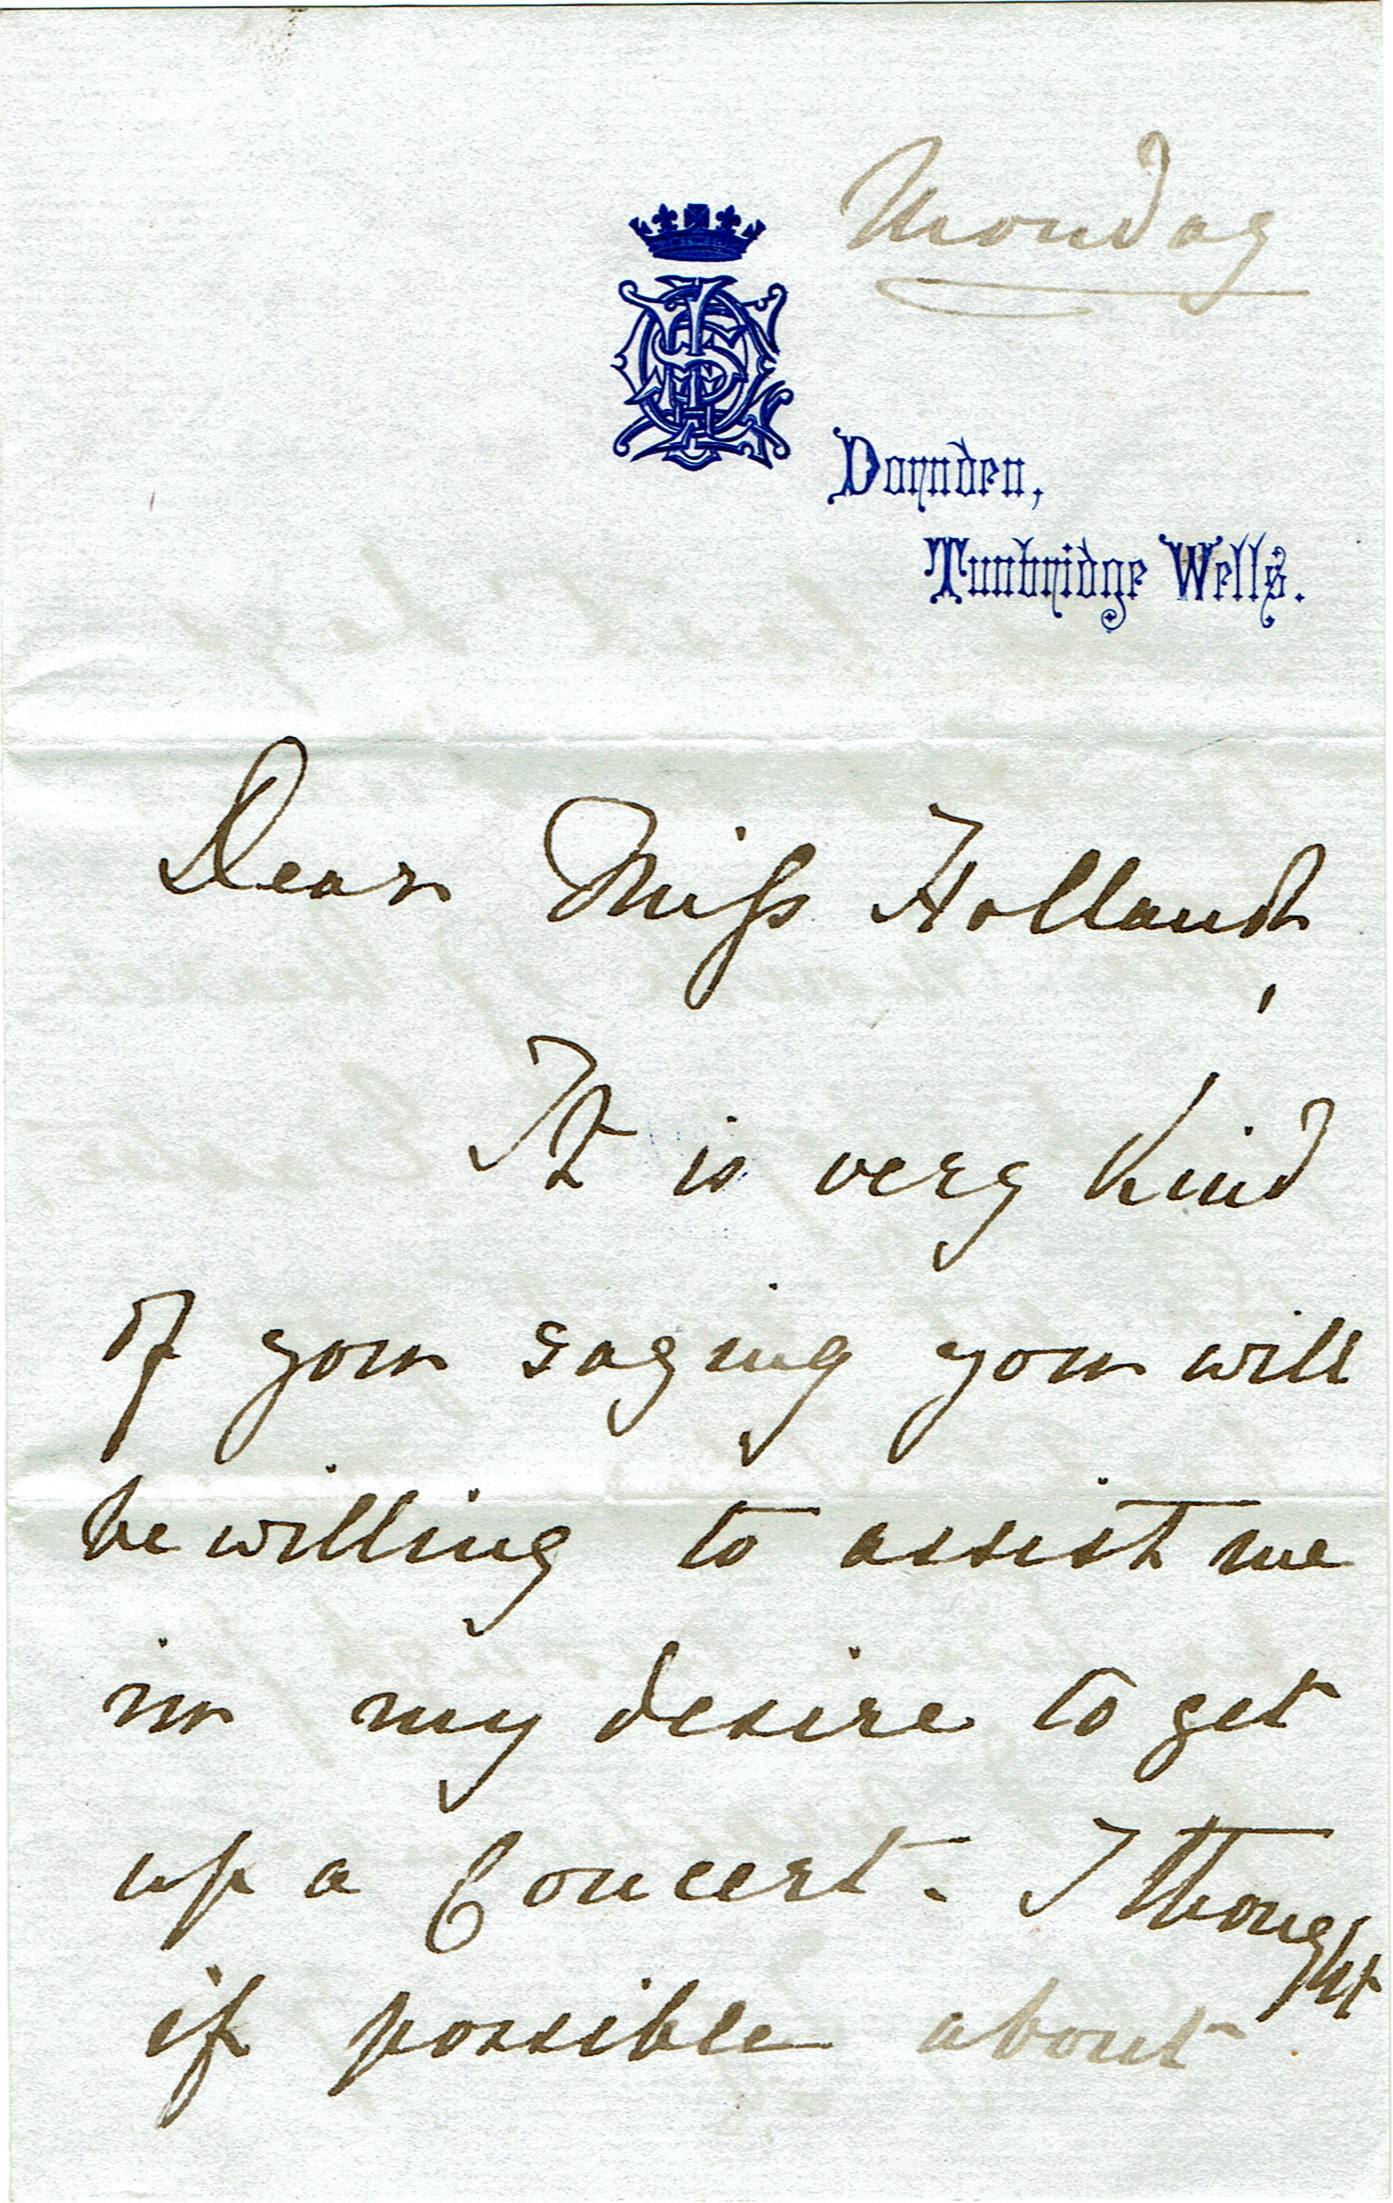 Monday
Dornden,
Tunbridge Wells.
Dear Miss Holland,
It is very kind
of you saying you will
be willing to assist me
in my desire to get
up a Concert. I thought
if possible about